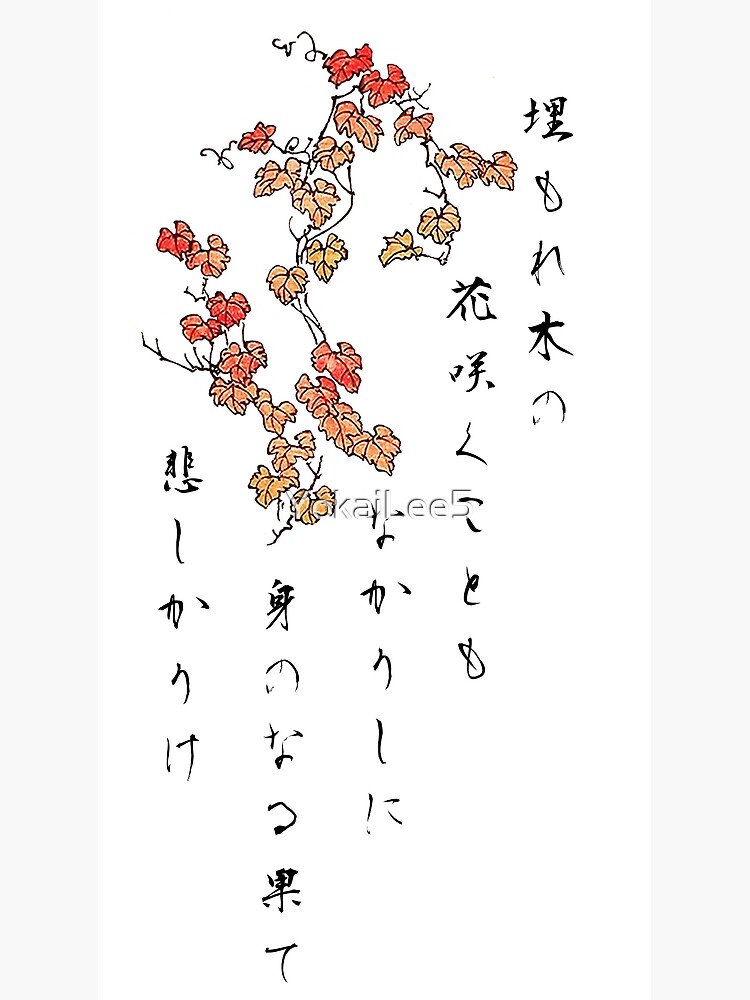 埋もれ木の
花咲くこととも
なかりしに
身のなる果て
悲しかりけ
YokaiLee5